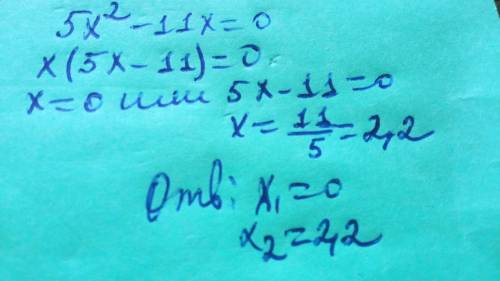 5x² - 11x = 0
x(5x - 11) = 0
x = 0 или 5x - 11 = 0
x = 11/5 = 2,2
Отв: x₁ = 0
x₂ = 2,2